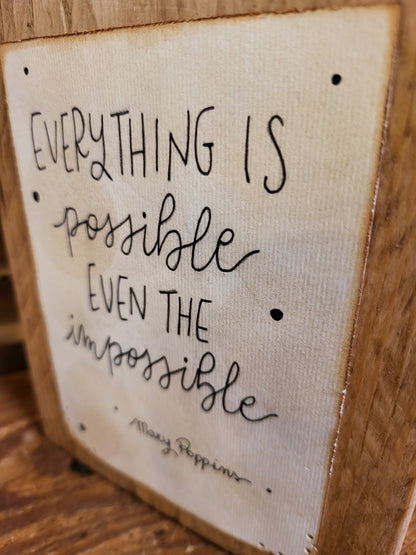 EVERYTHING IS
possible
EVEN THE
impossible
Mary Poppins